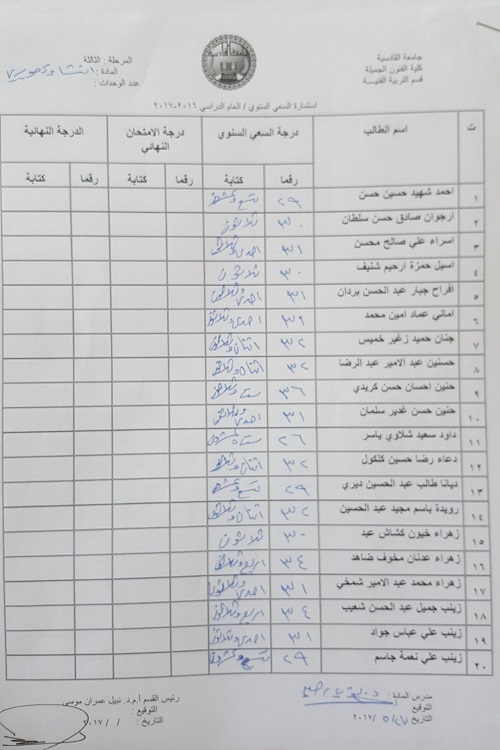 جامعة القادسية
كلية الفنون الجميلة
قسم التربية الفنية
المرحلة : الثالثة
المادة :
عدد الوحدات :
استمارة السعي السنوي / العام الدراسي ٢٠١٦-٢٠١٧
ت اسم الطالب درجة السعي السنوي درجة الامتحان النهائي الدرجة النهائية
رقما كتابة رقما كتابة رقما كتابة
١ احمد شهيد حسين حسن ٢٩ تسع وعشرون
٢ ارجوان صادق حسن سلطان ٣٠ ثلاثون
٣ اسراء علي صالح محسن ٣١ احدى وثلاثون
٤ اسيل حمزة ارحيم شنيف ٣٠ ثلاثون
٥ افراح جبار عبد الحسن بردان ٣١ احدى وثلاثون
٦ اماني عماد امين محمد احدى وثلاثون
٧ جنان حميد زغير خميس ٣٢ اثنان وثلاثون
٨ حسنين عبد الامير عبد الرضا ٣٢ اثنان وثلاثون
٩ حنين احسان حسن كريدي ٣٦ ستة وثلاثون
١٠ حنين حسن غدير سلمان ٣١ احدى وثلاثون
١١ داود سعيد شلاوي ياسر ٢٦ ستة وعشرون
١٢ دعاء رضا حسين كلكول ٣٢ اثنان وثلاثون
١٣ ديانا طالب عبد الحسين ديري ٢٩ تسع وعشرون
١٤ رويدة باسم مجيد عبد الحسين ٣٢ اثنان وثلاثون
١٥ زهراء خيون كشاش عبد ٣٠ ثلاثون
١٦ زهراء عدنان مخوف ضاهد ٣٤ اربع وثلاثون
١٧ زهراء محمد عبد الامير شمخي ٣١ احدى وثلاثون
١٨ زينب جميل عبد الحسن شعيب ٣٤ اربع وثلاثون
١٩ زينب علي عباس جواد ٣١ احدى وثلاثون
٢٠ زينب علي نعمة جاسم ٢٩ تسع وعشرون
مدرس المادة :
التوقيع
التاريخ : ٢٠١٧/
رئيس القسم أ.م.د. نبيل عمران موسى
التوقيع :
التاريخ : / /٢٠١٧